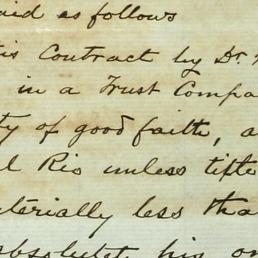 aid as follows
is Contract by Dr.
in a Trust Compa
ty of good faith, a
l Rio unless title
terially less tha
absolute his on